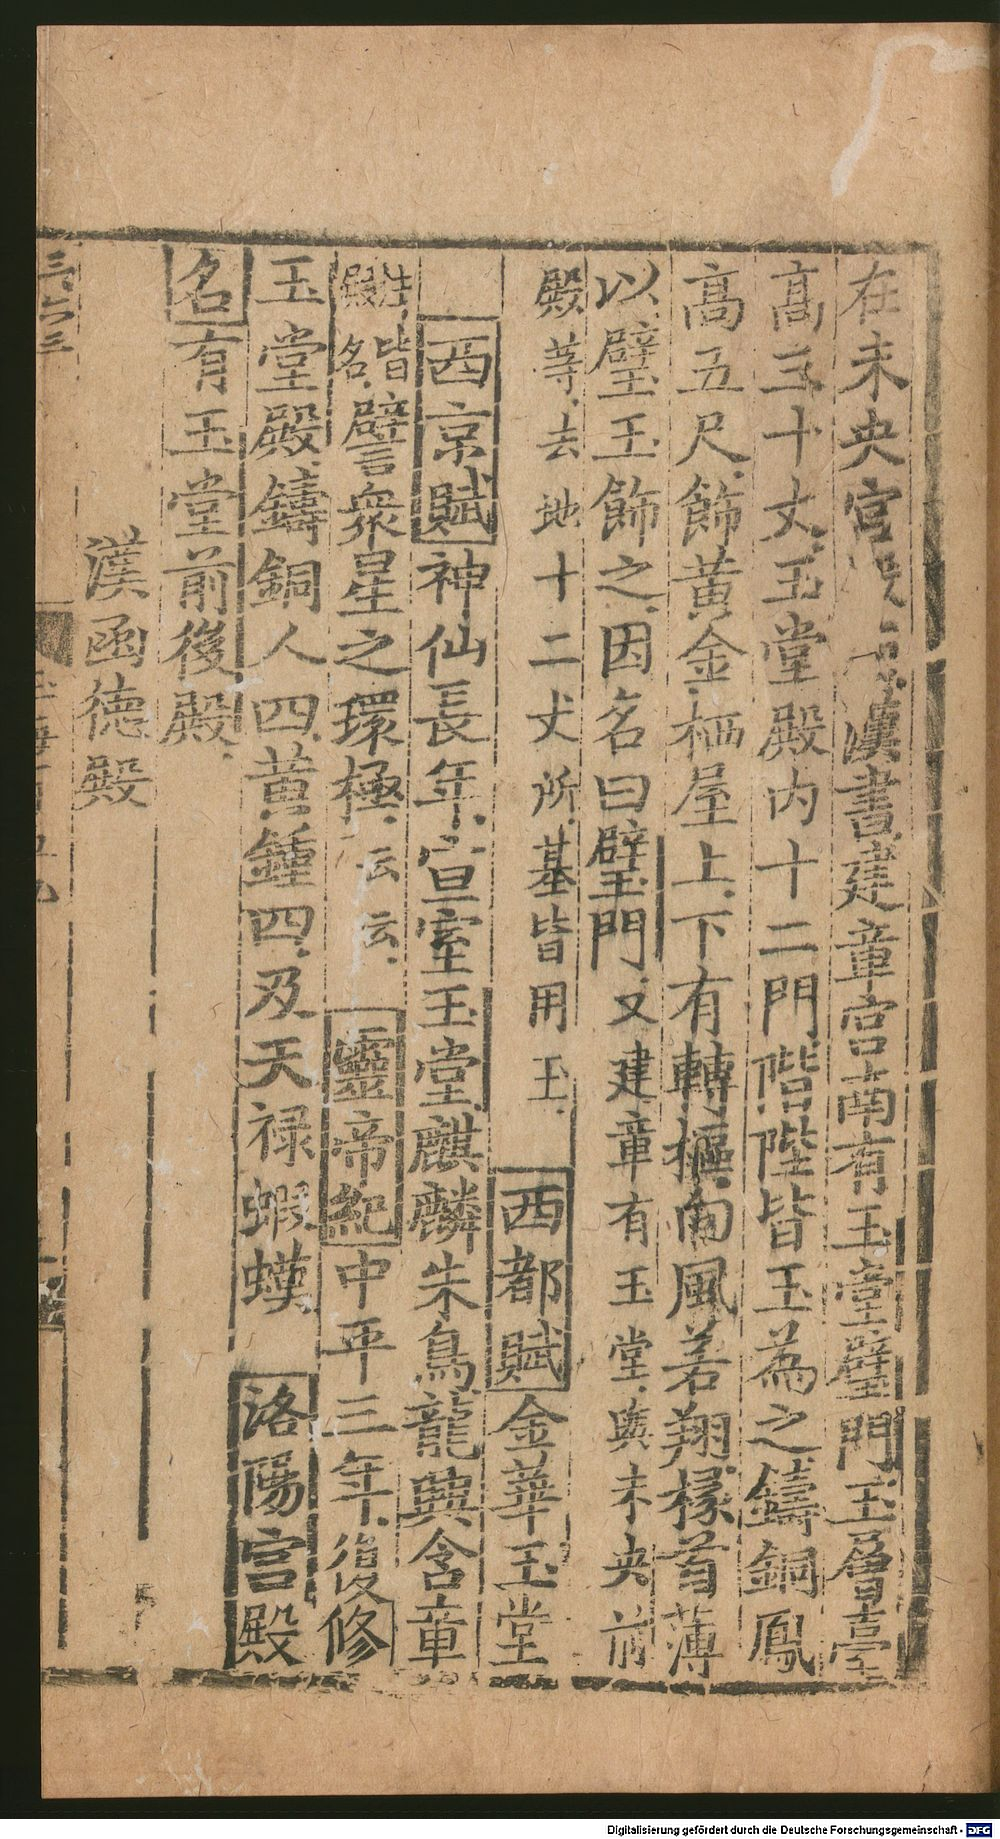 在未央宮殿漢書建章宮南有玉堂璧門玉層臺
高三十丈玉堂殿内十二門階陛皆玉為之鑄銅鳳
高五尺飾黃金栖屋上下有轉樞向風若翔椽首薄
以璧玉飾之因名曰璧門又建章有玉堂與未央前
殿等去地十二丈所基皆用玉 西都賦金華玉堂
西京賦神仙長年宣室玉堂麒麟朱鳥龍興含章
注皆
殿名
譬衆星之環極云云 靈帝紀中平三年復修
玉堂殿鑄銅人四黃鍾四及天祿蝦蟆 洛陽宮殿
名有玉堂前後殿
漢函德殿
三六三
Digitalisierung gefördert durch die Deutsche Forschungsgemeinschaft - DFG